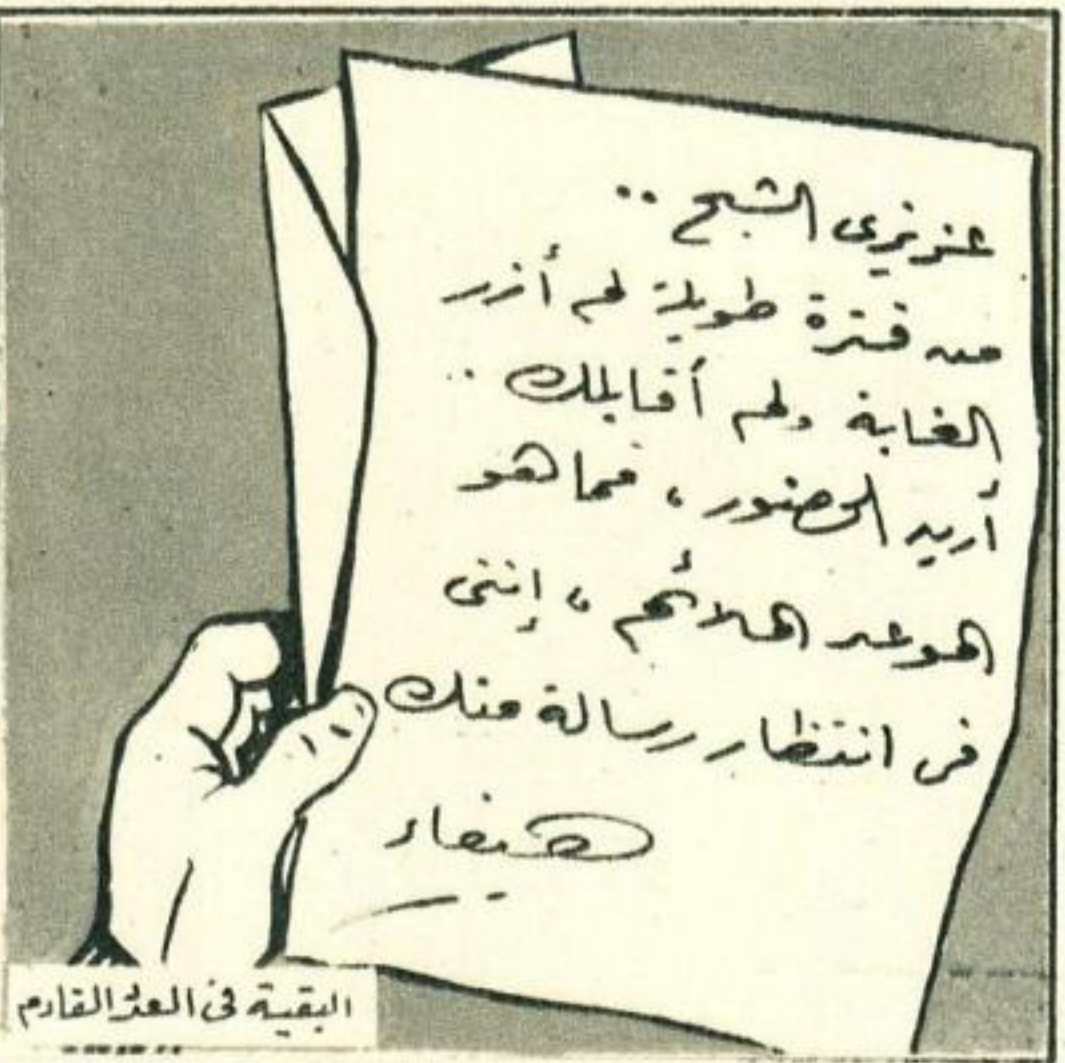 عزيزى الشبح ..
من فترة طويلة لم أزر
الغابة ولم أقابلك ..
أريد الحضور ، فما هو
الموعد الملائم ، إننى
فى انتظار رسالة منك
هيفاء
البقية فى العدد القادم